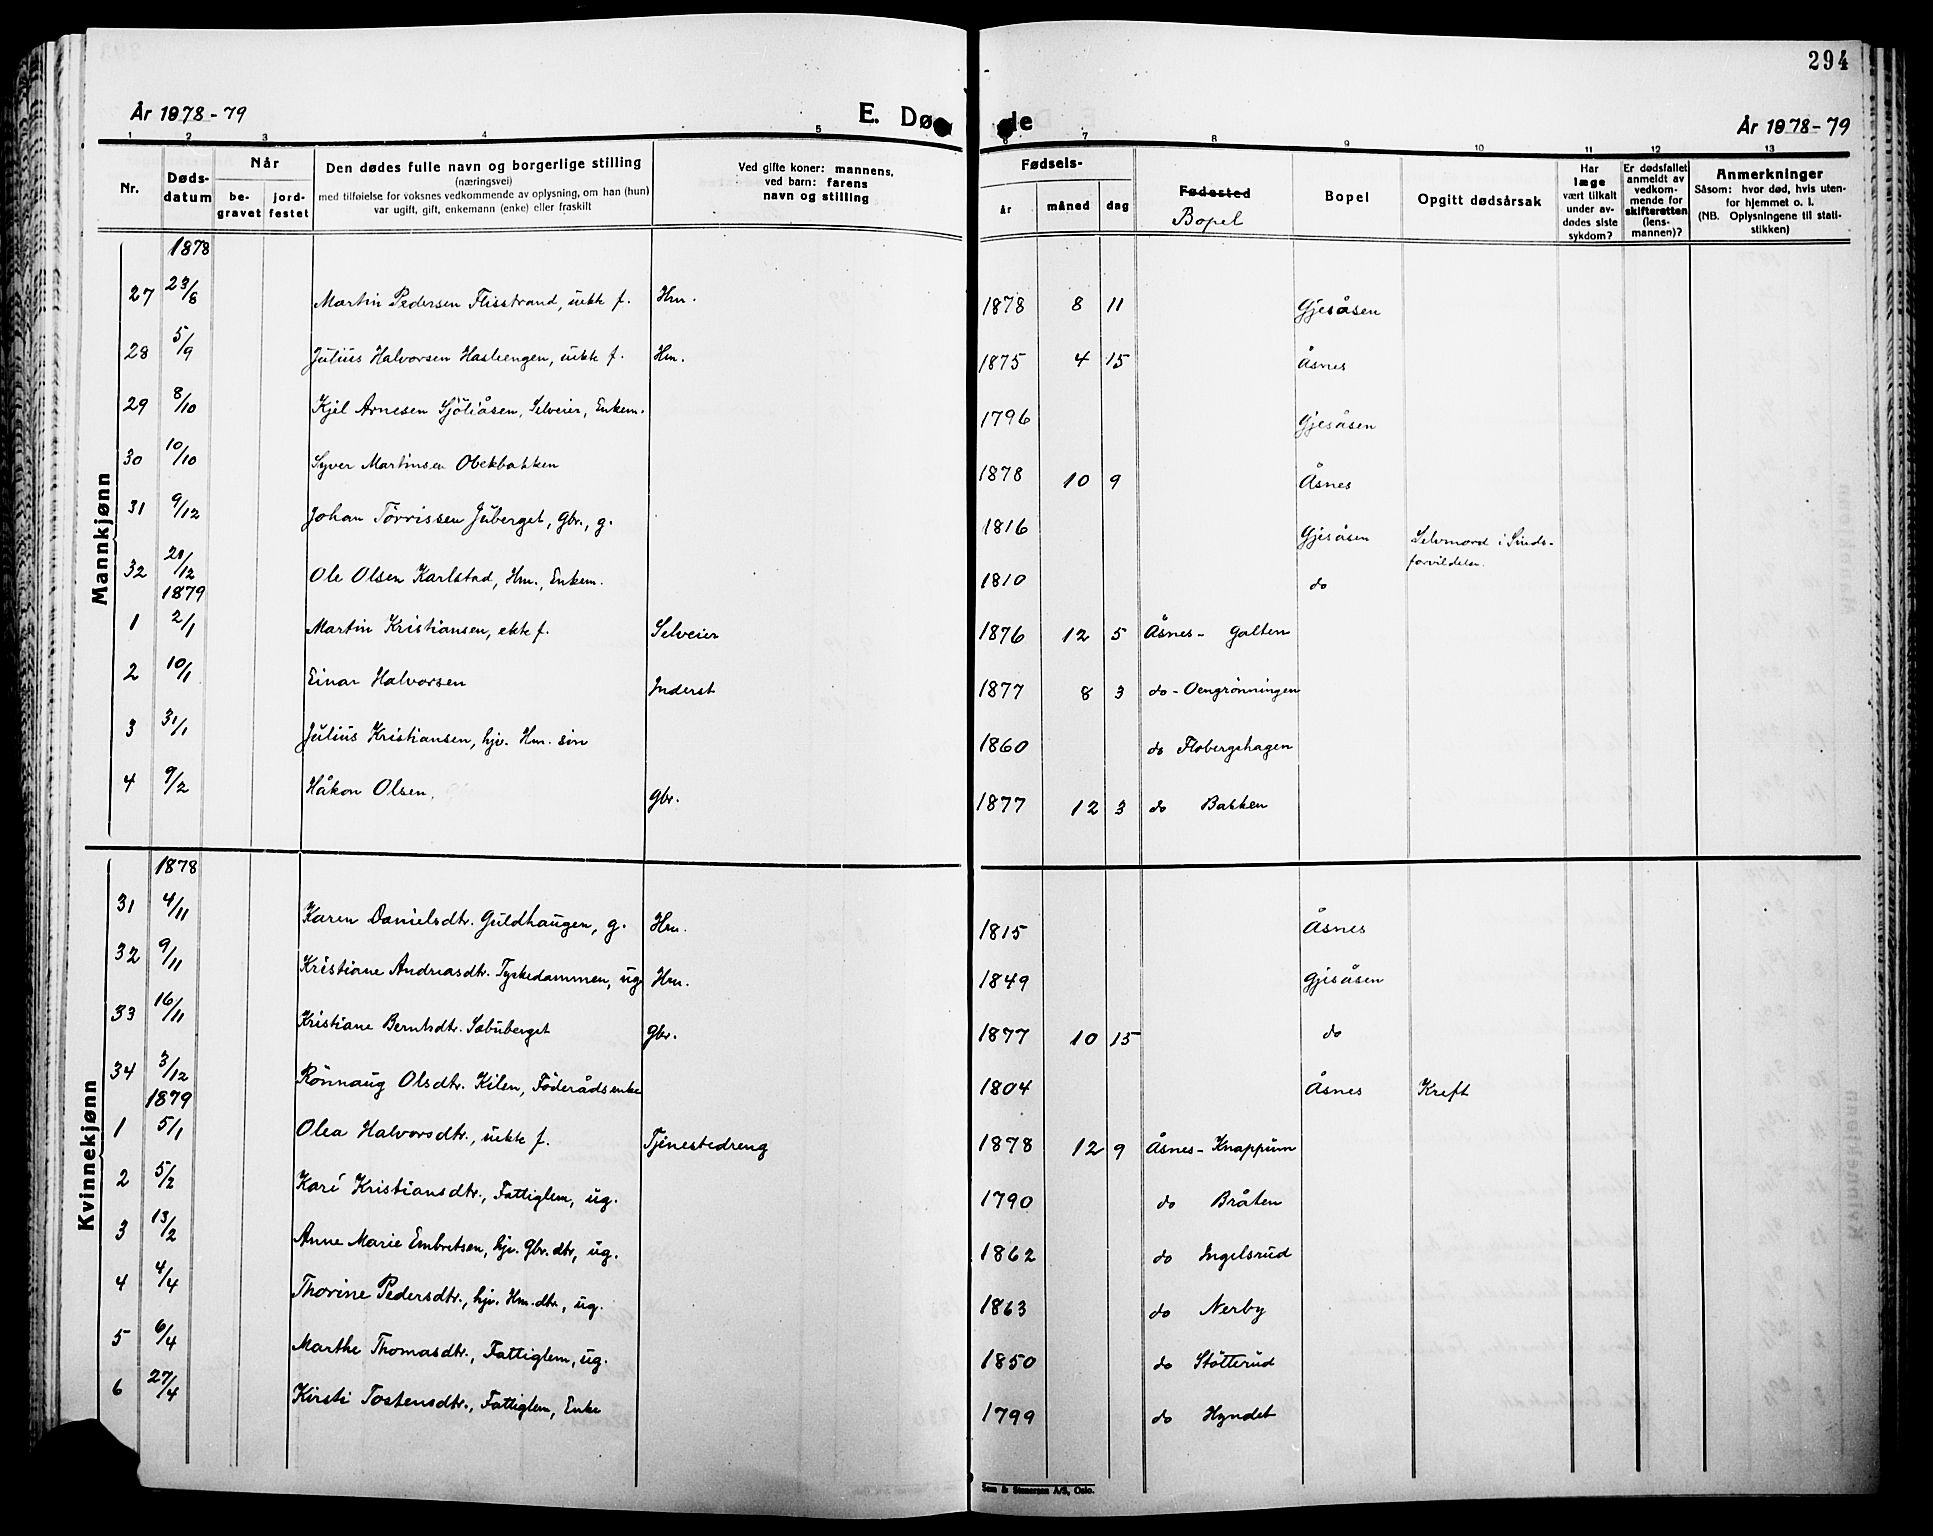 294
År 1878-79 E. Dø de År 1878-79
1 2 3 4 5 6 7 8 9 10 11 12 13
Nr. Dødsdatum Når begravet jordfestet Den dødes fulle navn og borgerlige stilling (næringsvei) med tilføielse for voksnes vedkommende av oplysning, om han (hun) var ugift, gift, enkemann (enke) eller fraskilt Ved gifte koner: mannens, ved barn: farens navn og stilling Fødsels- år måned dag Fødested Bopel Bopel Opgitt dødsårsak Har læge vært tilkalt under avdødes siste sykdom? Er dødsfallet anmeldt av vedkommende for skifteretten (lensmannen)? Anmerkninger Såsom: hvor død, hvis utenfor hjemmet o. l. (NB. Oplysningene til statistikken)
Mannkjønn
1878
27 23/8 Martin Pedersen Flisstrand, uekte f. Hm. 1878 8 11 Gjesåsen
28 5/9 Julius Halvorsen Haslengen, uekte f. Hm. 1875 4 15 Åsnes
29 8/10 Kjel Arnesen Sjöliåsen, Selveier, Enkem. 1796 Gjesåsen
30 10/10 Syver Martinsen Obekbakken 1878 10 9 Åsnes
31 9/12 Johan Törrissen Juberget, Gbr., g. 1816 Gjesåsen Selvmord i Sinds-
forvildelse.
32 20/12 Ole Olsen Karlstad, Hm., Enkem. 1810 do
1879
1 2/1 Martin Kristiansen, ekte f. Selveier 1876 12 5 Åsnes - Galten
2 10/1 Einar Halvorsen Inderst 1877 8 3 do - Oengrönningen
3 31/1 Julius Kristiansen, hjv. Hm. sön 1860 do Flobergshagen
4 9/2 Håkon Olsen. Gbr. 1877 12 3 do Bakken
Kvinnekjønn
1878
31 4/11 Karen Danielsdtr. Guldhaugen, g. Hm. 1815 Åsnes
32 9/11 Kristiane Andreasdtr. Tyskedammen, ug Hm. 1849 Gjesåsen
33 16/11 Kristiane Berntsdtr. Sæbuberget Gbr. 1877 10 15 do
34 3/12 Rönnaug Olsdtr. Kilen, Föderådsenke 1804 Åsnes Kreft
1879
1 5/1 Olea Halvorsdtr., uekte f. Tjenestedreng 1878 12 9 Åsnes - Knappum
2 5/2 Kari Kristiansdtr., Fattiglem, ug. 1790 do Bråten
3 13/2 Anne Marie Embretsen, hjv. Gbr. dtr, ug. 1862 do Ingelsrud
4 4/4 Thorine Pedersdtr., hjv. Hm. dtr, ug. 1863 do Nerby
5 6/4 Marthe Thomasdtr., Fattiglem, ug. 1850 do Stötterud
6 27/4 Kirsti Tostensdtr., Fattiglem, Enke 1799 do Hyndet
Sem & Stenersen A/S, Oslo.